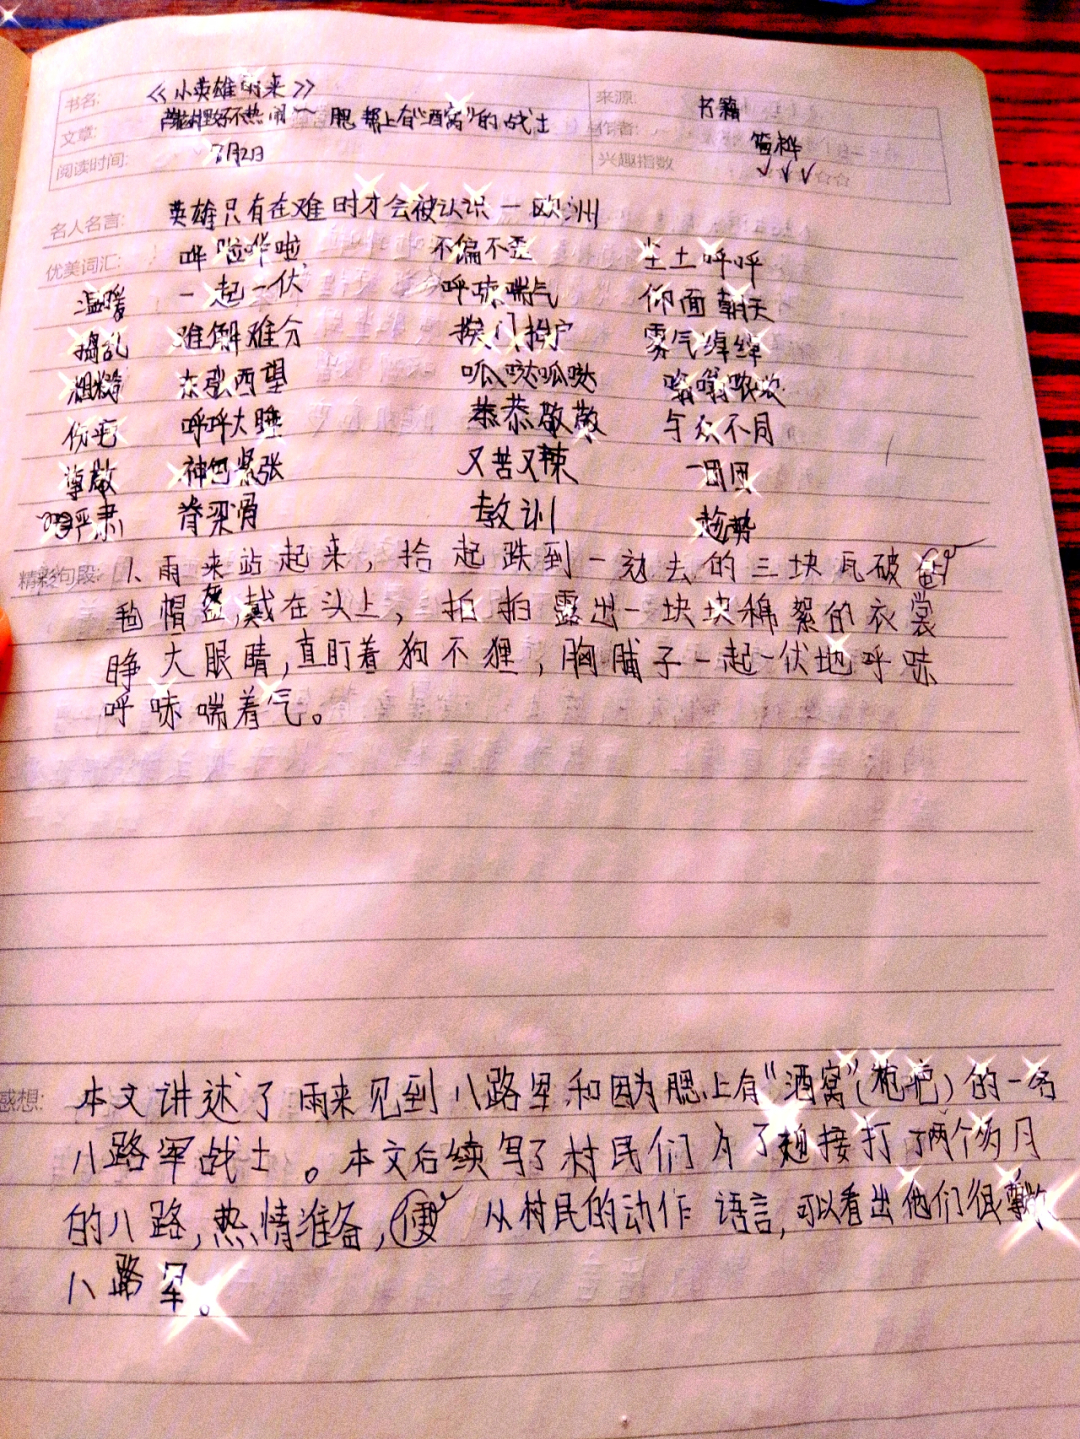 书名: 《小英雄雨来》 来源: 书籍
文章: 芦花村里好不热闹 腮帮上有“酒窝”的战士 作者: 管桦
阅读时间: 7月2日 兴趣指数 ✓✓✓☆☆
名人名言: 英雄只有在难时才会被认识一欧洲
优美词汇: 哗啦哗啦 不偏不歪 尘土呼呼
温暖 一起一伏 呼哧喘气 仰面朝天
捣乱 难解难分 挨门挨户 雾气绰绰
粗糙 东张西望 呱哒呱哒 嗡嗡哝哝
伤疤 呼呼大睡 恭恭敬敬 与众不同
尊敬 神色紧张 又苦又辣 一团团
严肃 脊梁骨 教训 趋势
精彩句段: 1、雨来站起来，拾起跌到一边去的三块瓦破
毡帽盔,戴在头上，拍拍露出一块块棉絮的衣裳
睁大眼睛,直盯着狗不狸，胸脯子一起一伏地呼哧
呼哧喘着气。
感想: 本文讲述了雨来见到八路军和因为腮上有“酒窝”(枪疤)的一名
八路军战士。本文后续写了村民们为了迎接打了两个多月
的八路,热情准备, 从村民的动作 语言,可以看出他们很尊敬
八路军。